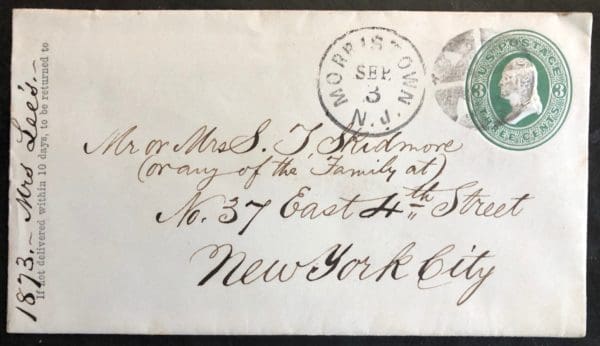 MORRISTOWN. N.J.
SEP
3
U.S. POSTAGE
3 3
THREE CENTS
Mr or Mrs S. T. Skidmore
(or any of the Family at)
No. 37 East 4th Street
New York City
1873. — Mrs Lee's. —
If not delivered within 10 days, to be returned to